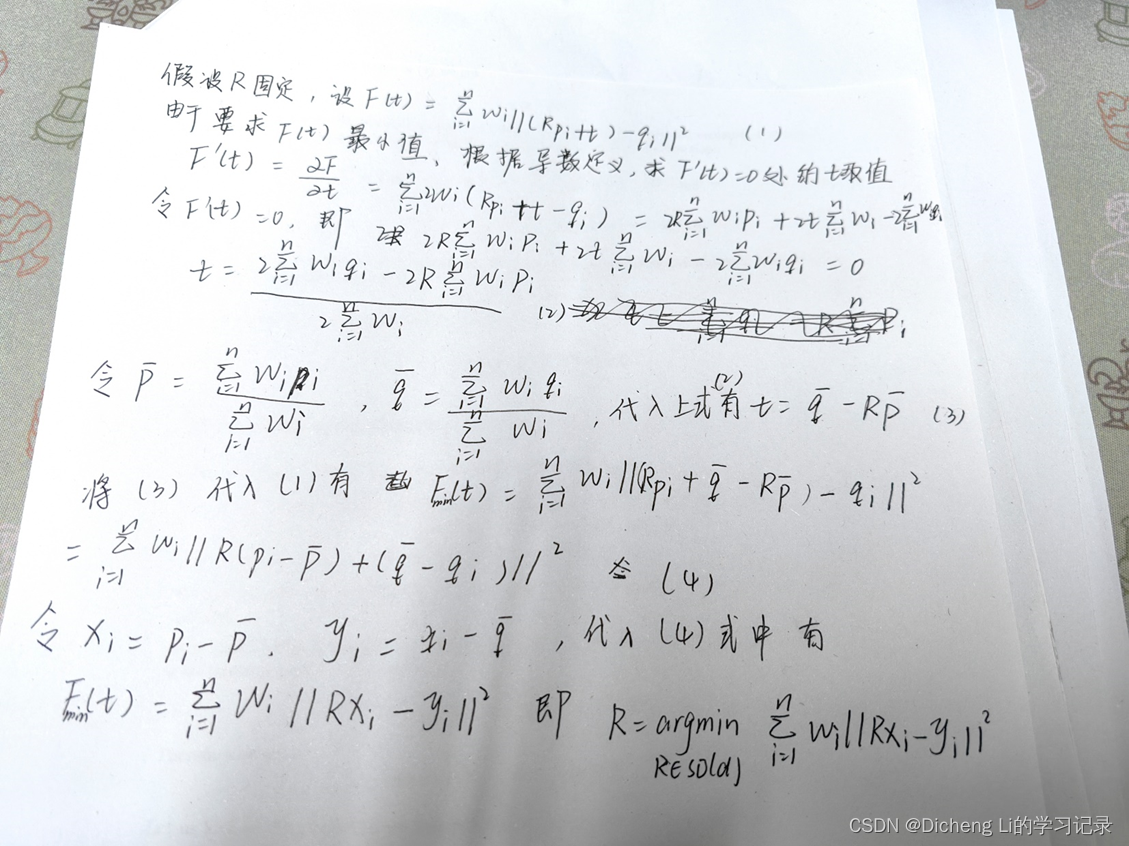 假设R固定，设F(t) = \sum_{i=1}^{n} w_i||(Rp_i+t)-q_i||^2 (1)
由于要求F(t)最小值，根据导数定义，求F'(t)=0处的t取值
F'(t) = \frac{∂F}{∂t} = \sum_{i=1}^{n} 2w_i(Rp_i+t-q_i) = 2R\sum_{i=1}^{n} w_ip_i + 2t\sum_{i=1}^{n} w_i - 2\sum_{i=1}^{n} w_iq_i
令F'(t)=0，即 2R\sum_{i=1}^{n} w_ip_i + 2t\sum_{i=1}^{n} w_i - 2\sum_{i=1}^{n} w_iq_i = 0
t = \frac{2\sum_{i=1}^{n} w_iq_i - 2R\sum_{i=1}^{n} w_ip_i}{2\sum_{i=1}^{n} w_i} (2)
令\bar{p} = \frac{\sum_{i=1}^{n} w_ip_i}{\sum_{i=1}^{n} w_i}，\bar{q} = \frac{\sum_{i=1}^{n} w_iq_i}{\sum_{i=1}^{n} w_i}，代入上式(2)有 t = \bar{q} - R\bar{p} (3)
将(3)代入(1)有 F_{min}(t) = \sum_{i=1}^{n} w_i||(Rp_i+\bar{q}-R\bar{p})-q_i||^2
= \sum_{i=1}^{n} w_i||R(p_i-\bar{p})+(\bar{q}-q_i)||^2 (4)
令 x_i = p_i-\bar{p}. y_i = q_i-\bar{q}，代入(4)式中有
F_{min}(t) = \sum_{i=1}^{n} w_i||Rx_i-y_i||^2 即 R = argmin_{R∈SO(d)} \sum_{i=1}^{n} w_i||Rx_i-y_i||^2
CSDN @Dicheng Li的学习记录